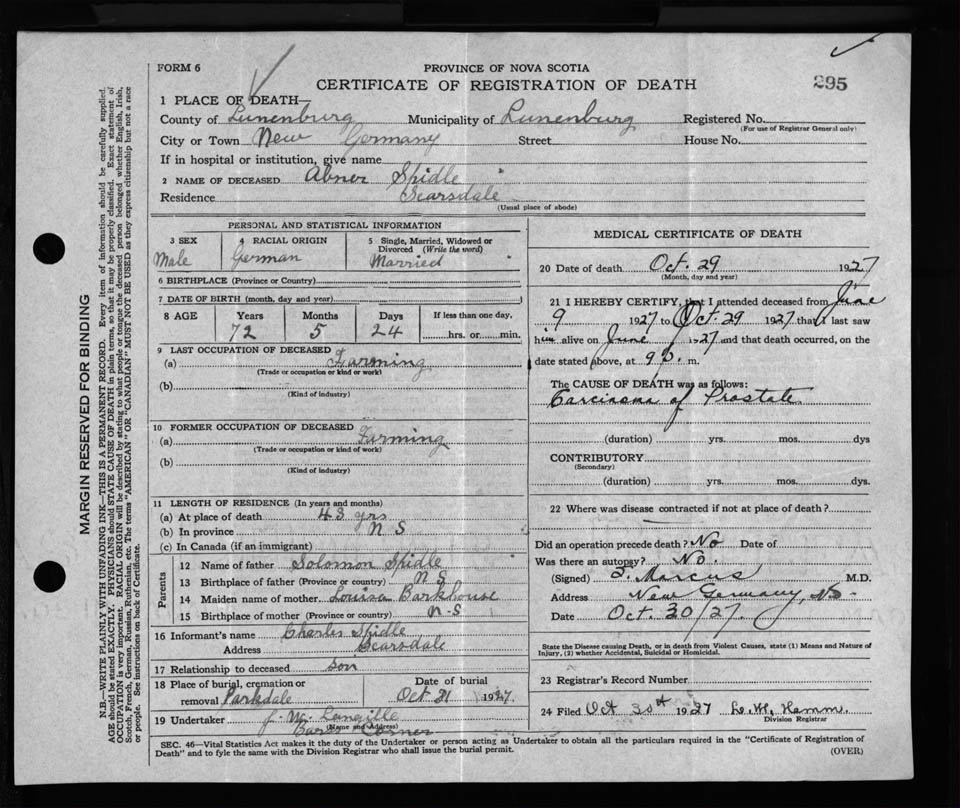 FORM 6
PROVINCE OF NOVA SCOTIA
CERTIFICATE OF REGISTRATION OF DEATH
295
1 PLACE OF DEATH—
County of Lunenburg Municipality of Lunenburg Registered No.
(For use of Registrar General only)
City or Town New Germany Street House No.
If in hospital or institution, give name
2 NAME OF DECEASED Abner Spidle
Residence Scarsdale
(Usual place of abode)
PERSONAL AND STATISTICAL INFORMATION
3 SEX 4 RACIAL ORIGIN 5 Single, Married, Widowed or Divorced (Write the word)
Male German Married
6 BIRTHPLACE (Province or Country)
7 DATE OF BIRTH (month, day and year)
8 AGE Years Months Days If less than one day,
72 5 24 hrs. or min.
9 LAST OCCUPATION OF DECEASED
(a) Farming
(Trade or occupation or kind or work)
(b)
(Kind of industry)
10 FORMER OCCUPATION OF DECEASED
(a) Farming
(Trade or occupation or kind of work)
(b)
(Kind of industry)
11 LENGTH OF RESIDENCE (In years and months)
(a) At place of death 43 yrs
(b) In province N S
(c) In Canada (if an immigrant)
Parents
12 Name of father Solomon Spidle
13 Birthplace of father (Province or country) N S
14 Maiden name of mother Louisa Barkhouse
15 Birthplace of mother (Province or country) N-S
16 Informant's name Charles Spidle
Address Scarsdale
17 Relationship to deceased son
18 Place of burial, cremation or removal Parkdale Date of burial Oct 31 1927
19 Undertaker J. W. Langille
(Name and Address)
Barss Corner
MEDICAL CERTIFICATE OF DEATH
20 Date of death Oct. 29 1927
(Month, day and year)
21 I HEREBY CERTIFY, that I attended deceased from June
9 1927 to Oct. 29 1927 that I last saw
him alive on June 1927 and that death occurred, on the
date stated above, at 9 p. m.
The CAUSE OF DEATH was as follows:
Carcinoma of Prostate
(duration) yrs. mos. dys
CONTRIBUTORY
(Secondary)
(duration) yrs. mos. dys.
22 Where was disease contracted if not at place of death?
Did an operation precede death? No Date of
Was there an autopsy? No.
(Signed) S. Marcus M.D.
Address New Germany, NS-
Date Oct. 30/27.
State the Disease causing Death, or in death from Violent Causes, state (1) Means and Nature of
Injury, (2) whether Accidental, Suicidal or Homicidal.
23 Registrar's Record Number
24 Filed Oct 30th 1927
Division Registrar
SEC. 46—Vital Statistics Act makes it the duty of the Undertaker or person acting as Undertaker to obtain all the particulars required in the "Certificate of Registration of
Death" and to fyle the same with the Division Registrar who shall issue the burial permit.
(OVER)
MARGIN RESERVED FOR BINDING
N.B.—WRITE PLAINLY WITH UNFADING INK—THIS IS A PERMANENT RECORD. Every item of information should be carefully supplied.
AGE should be stated EXACTLY. PHYSICIANS should STATE CAUSE OF DEATH in plain terms, so that it may be properly classified. Exact statement of
OCCUPATION is very important. RACIAL ORIGIN will be described by stating to what people or tongue the deceased person belonged whether English, Irish,
Scotch, French, German, Russian, Ruthenian, etc. The terms "AMERICAN" OR "CANADIAN" MUST NOT BE USED as they express citizenship but not a race
or people. See instructions on back of Certificate.